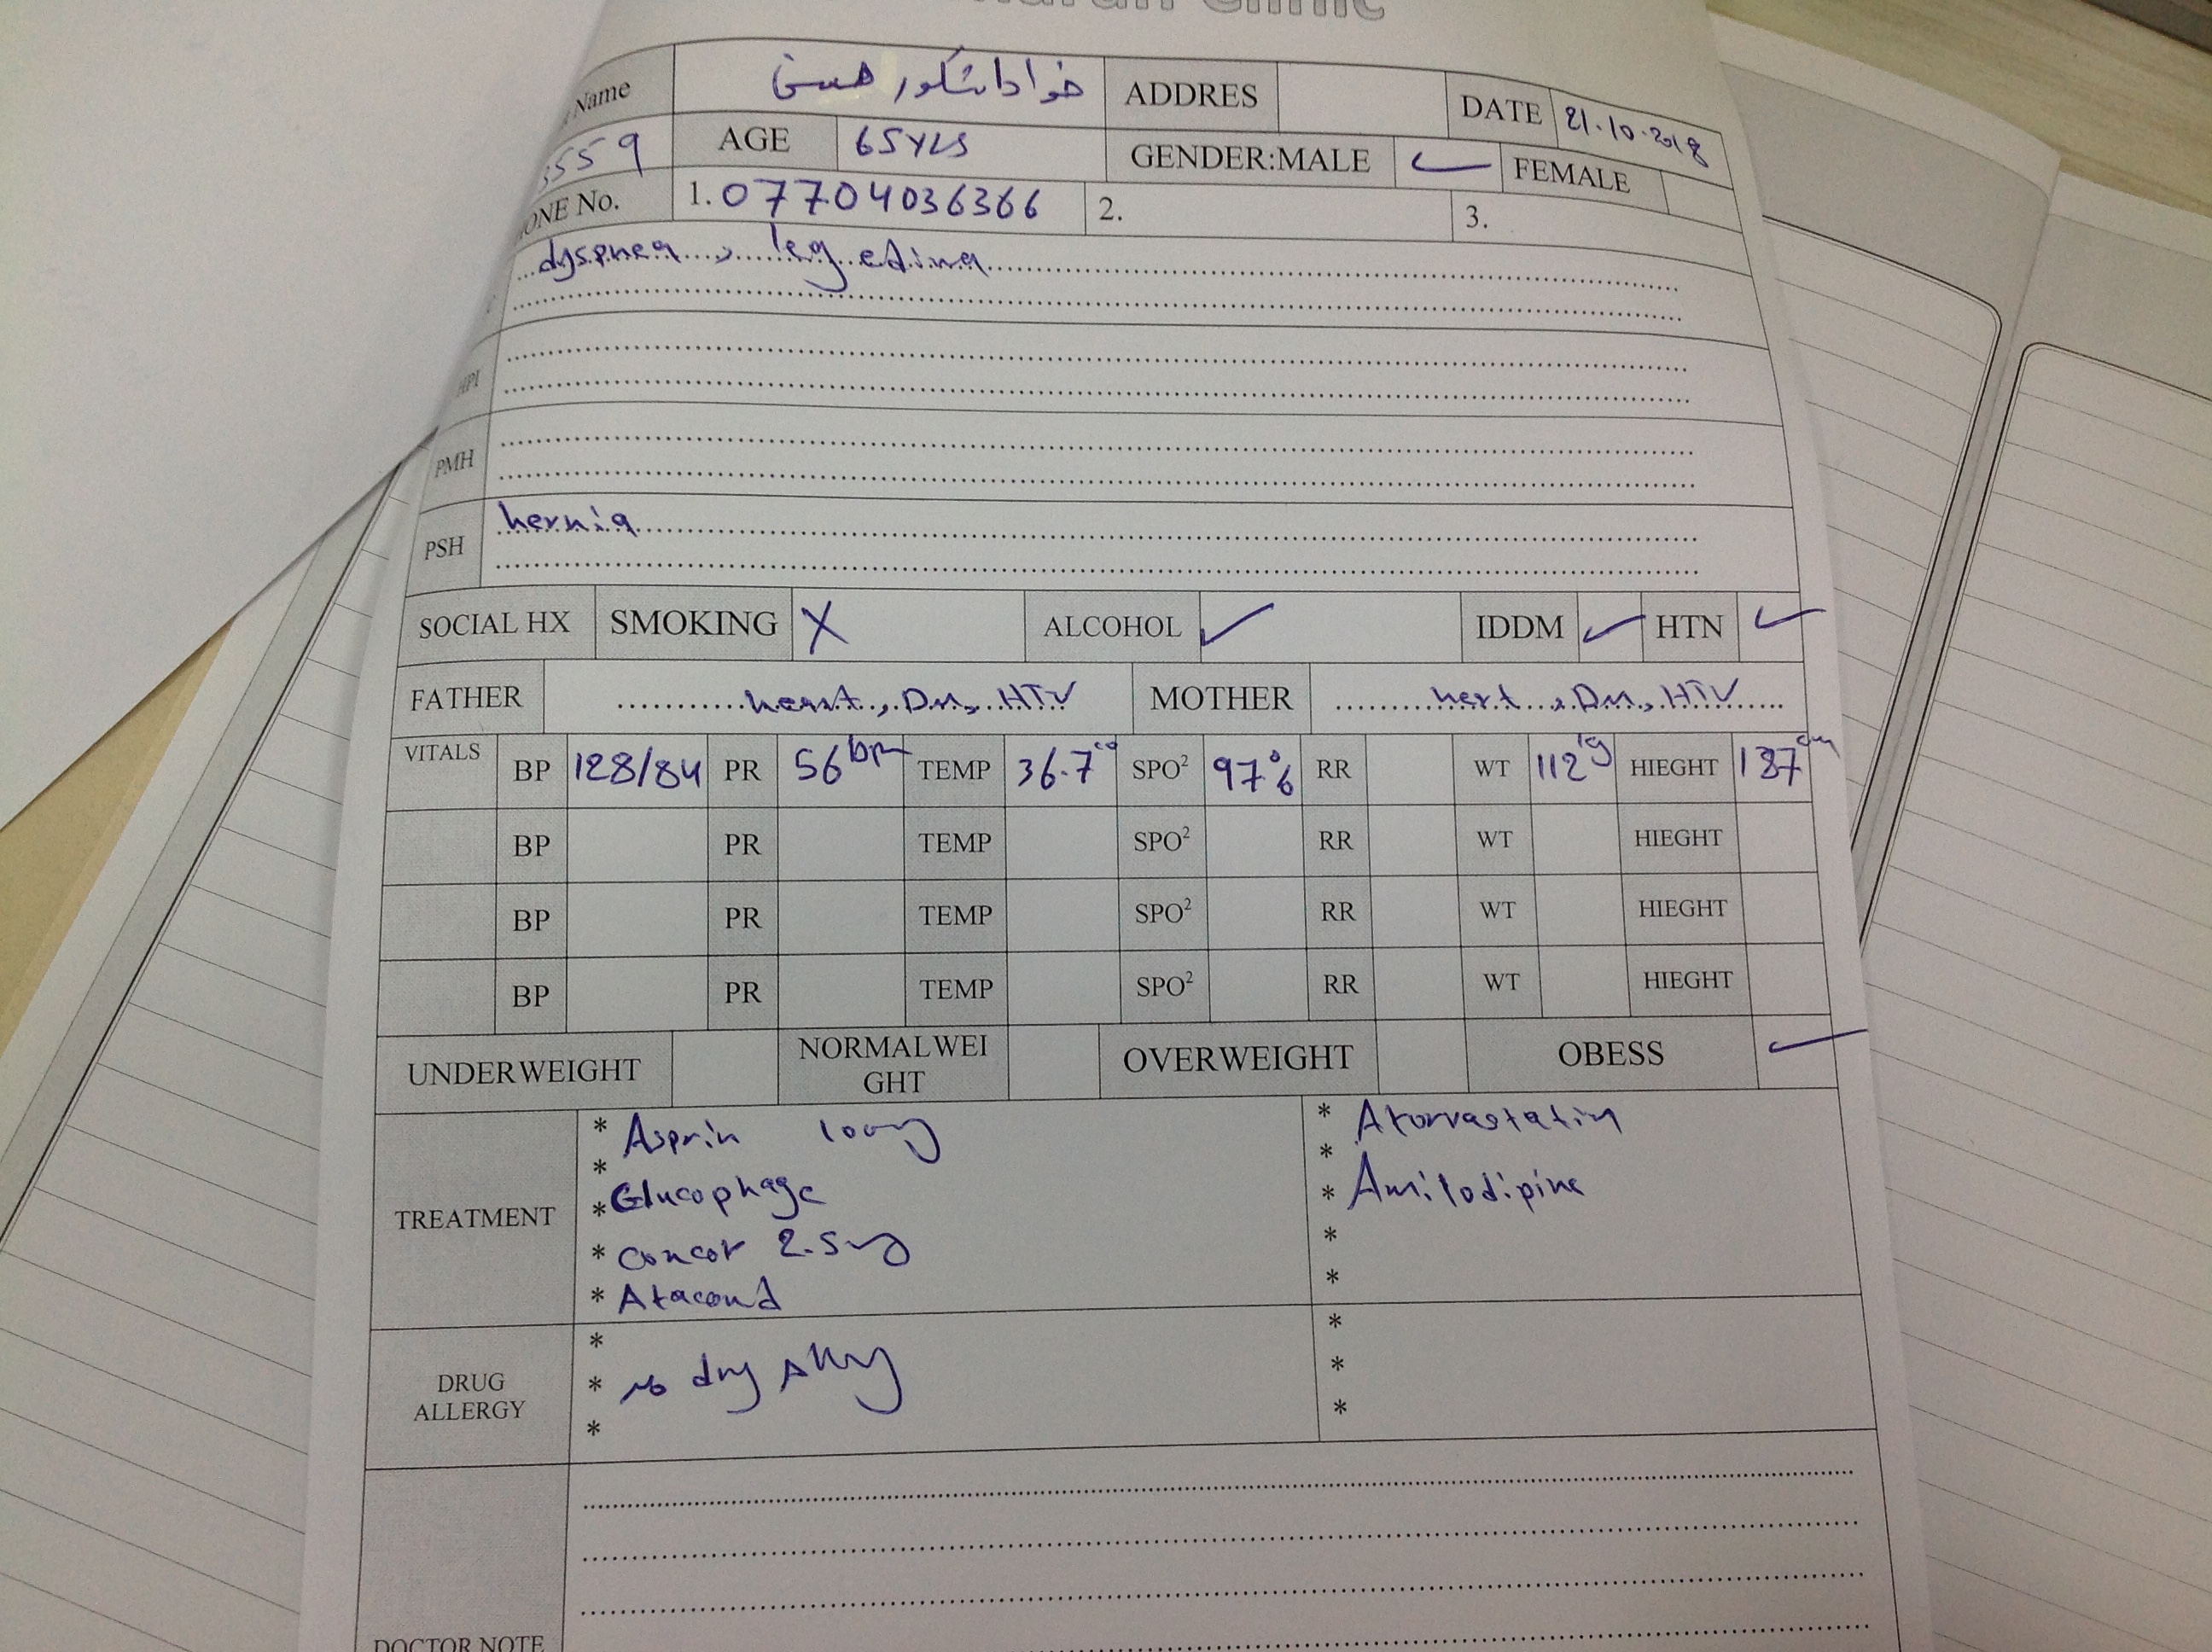 Clinic
Name خوادا شكور حسن ADDRES DATE 21.10.2018
5559 AGE 65 YLS GENDER:MALE ✓ FEMALE
ONE No. 1. 07704036366 2. 3.
dyspnea , leg edima
HPI
PMH
PSH hernia
SOCIAL HX SMOKING X ALCOHOL ✓ IDDM ✓ HTN ✓
FATHER heart, DM, HTN MOTHER hert, DM, HTN
VITALS BP 128/84 PR 56 bpm TEMP 36.7 SPO² 97% RR WT 112 kg HIEGHT 187 cm
BP PR TEMP SPO² RR WT HIEGHT
BP PR TEMP SPO² RR WT HIEGHT
BP PR TEMP SPO² RR WT HIEGHT
UNDERWEIGHT NORMALWEI OVERWEIGHT OBESS ✓
GHT
TREATMENT
* Asprin 100mg
*
* Glucophage
* Concor 2.5mg
* Atacand
* Atorvastatin
*
* Amilodipine
*
*
DRUG
ALLERGY
*
* no drug Allergy
*
*
*
*
DOCTOR NOTE